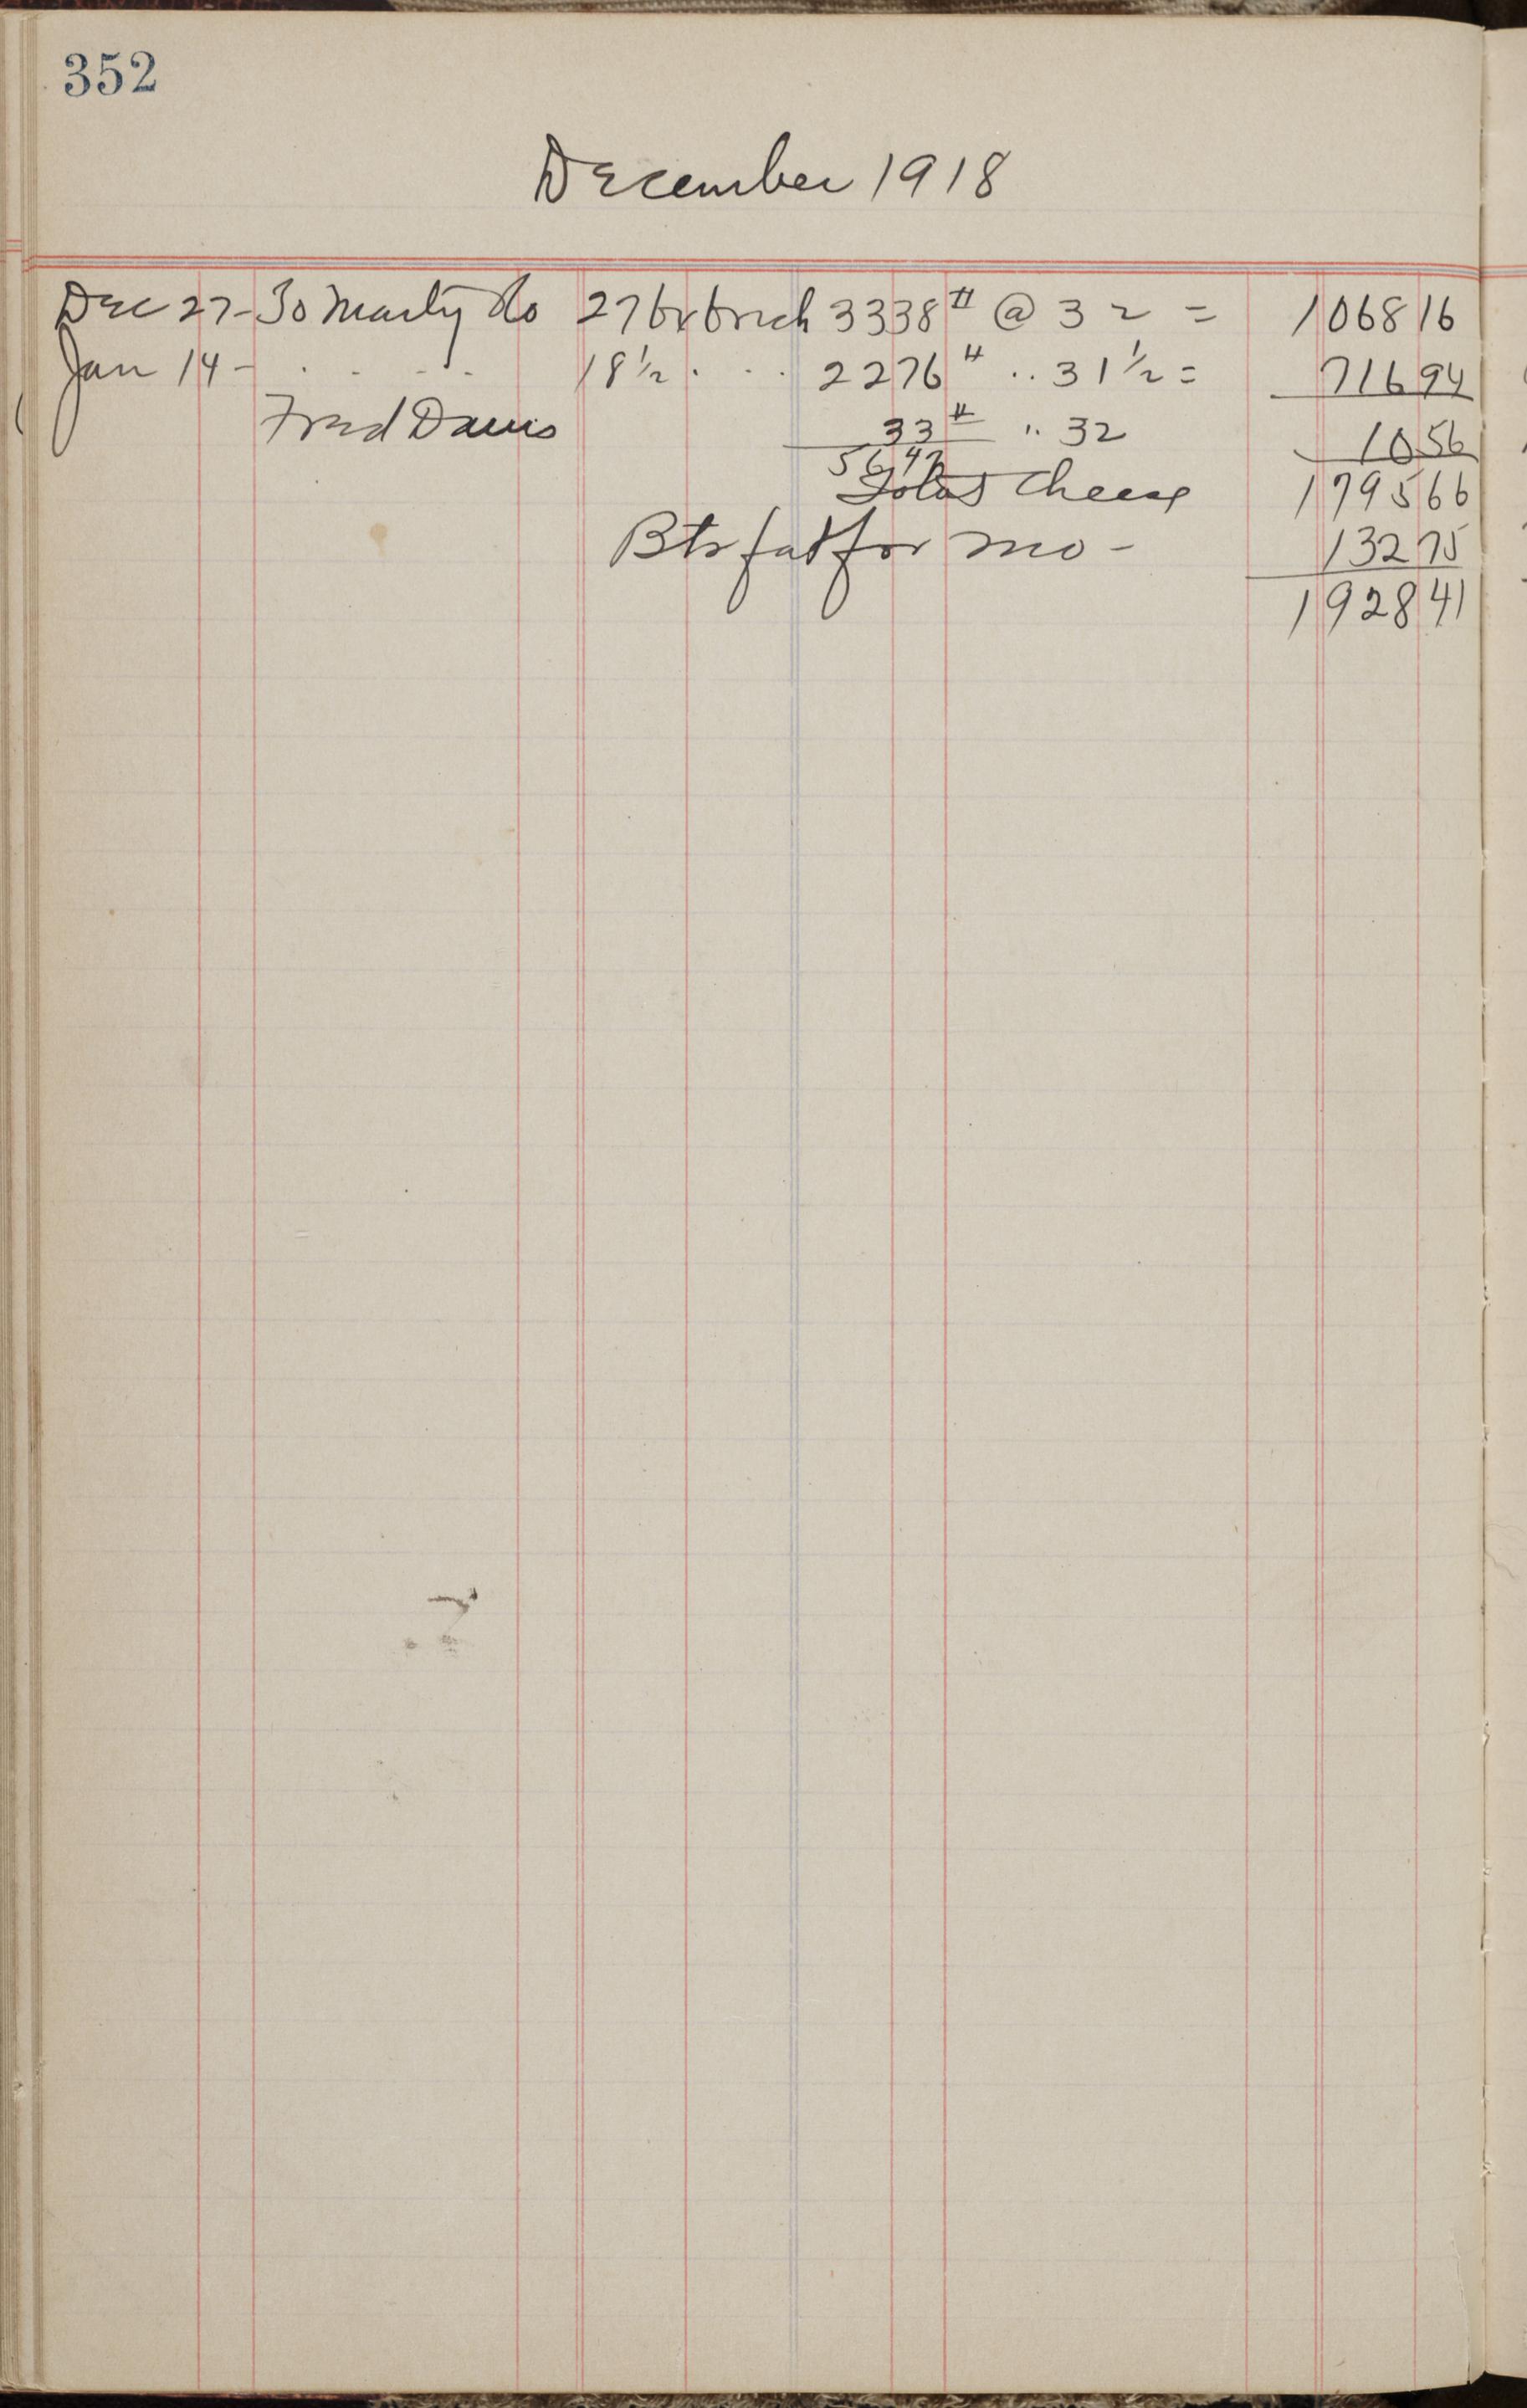 352
December 1918
Dec 27 - To Marty Co 27 bx brick 3338 # @ 32 = 1068 16
Jan 14 - . . . . 18 1/2 . . . 2276 # .. 31 1/2 = 716 94
Fred Davis 33 # " 32 10 56
5647
Total Cheese 1795 66
Btr fat for mo - 132 75
1928 41